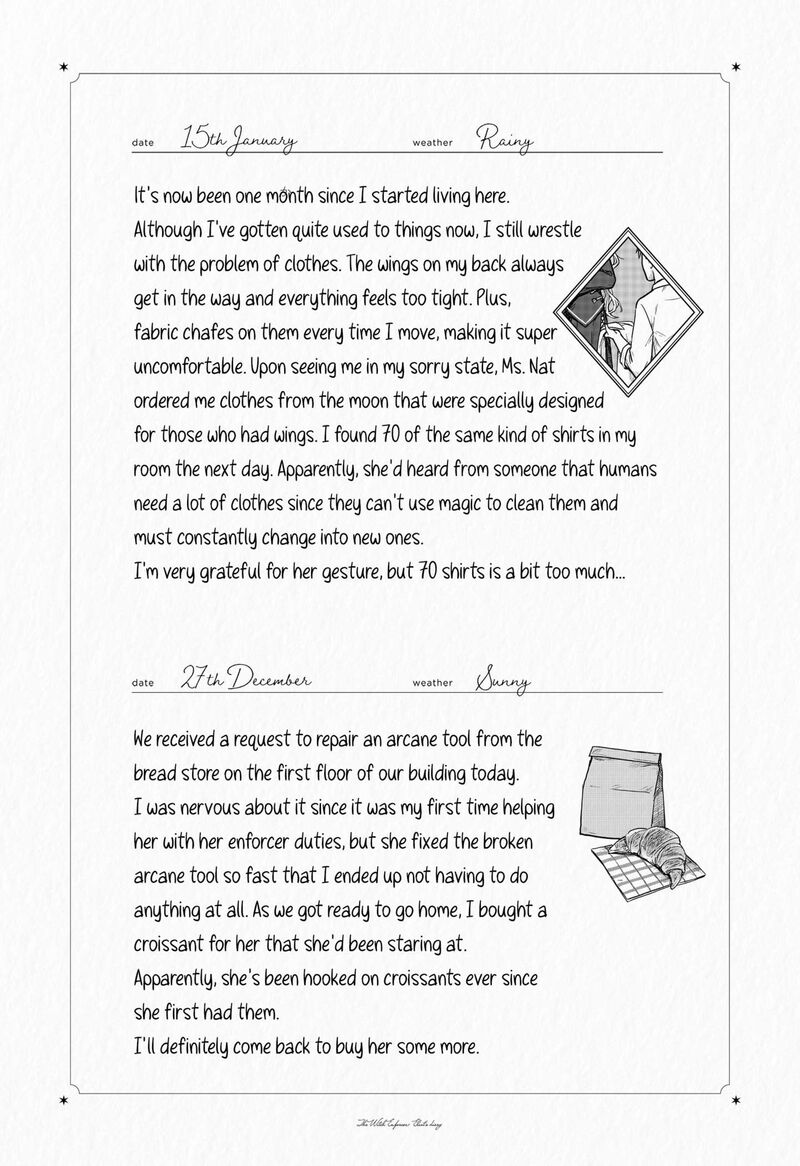 date 15th January weather Rainy
It's now been one month since I started living here.
Although I've gotten quite used to things now, I still wrestle
with the problem of clothes. The wings on my back always
get in the way and everything feels too tight. Plus,
fabric chafes on them every time I move, making it super
uncomfortable. Upon seeing me in my sorry state, Ms. Nat
ordered me clothes from the moon that were specially designed
for those who had wings. I found 70 of the same kind of shirts in my
room the next day. Apparently, she'd heard from someone that humans
need a lot of clothes since they can't use magic to clean them and
must constantly change into new ones.
I'm very grateful for her gesture, but 70 shirts is a bit too much...
date 27th December weather Sunny
We received a request to repair an arcane tool from the
bread store on the first floor of our building today.
I was nervous about it since it was my first time helping
her with her enforcer duties, but she fixed the broken
arcane tool so fast that I ended up not having to do
anything at all. As we got ready to go home, I bought a
croissant for her that she'd been staring at.
Apparently, she's been hooked on croissants ever since
she first had them.
I'll definitely come back to buy her some more.
The Witch Enforcer diary